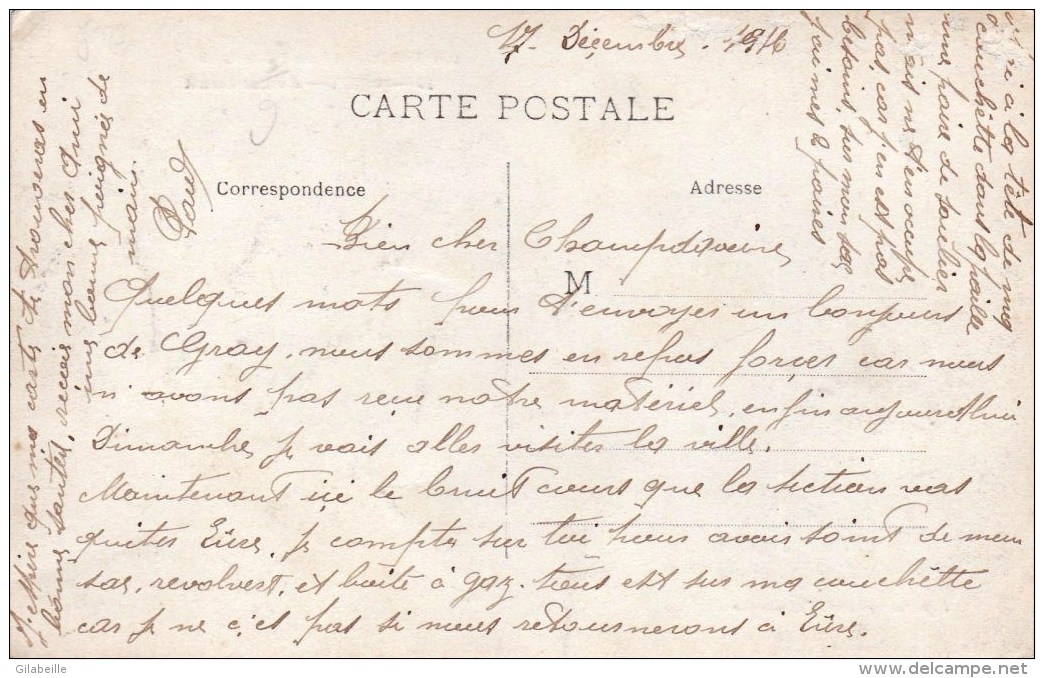 17 Décembre 1916
CARTE POSTALE
Correspondence
Adresse
M
Bien cher
Quelques mots pour t'envoyer un bonjours
de Gray, nous sommes en repos forcer car nous
n'avons pas reçu notre matériel, enfin aujourd'hui
Dimanche je vais aller visiter la ville.
Maintenant ici le bruit cours que la section vas
quiter Eûre. Je compte sur toi pour avoir soint de mon
sac, revolvert, et boite à gaz. tous est sur ma couchêtte
car je ne c'est pas si nous retournerons à Eûre.
à la tête de ma
couchêtte dans la paille
une paire de soulier
mais ne t'en occupe
pas, car j'en est pas
besoins, sur mon sac
j'ai mes 2 paires
J. éspère que ma carte te trouveras en
bonne santer, reçois mon cher ami
une bonne poignée de
main.
Paul
Gilabeille
delcampe.net